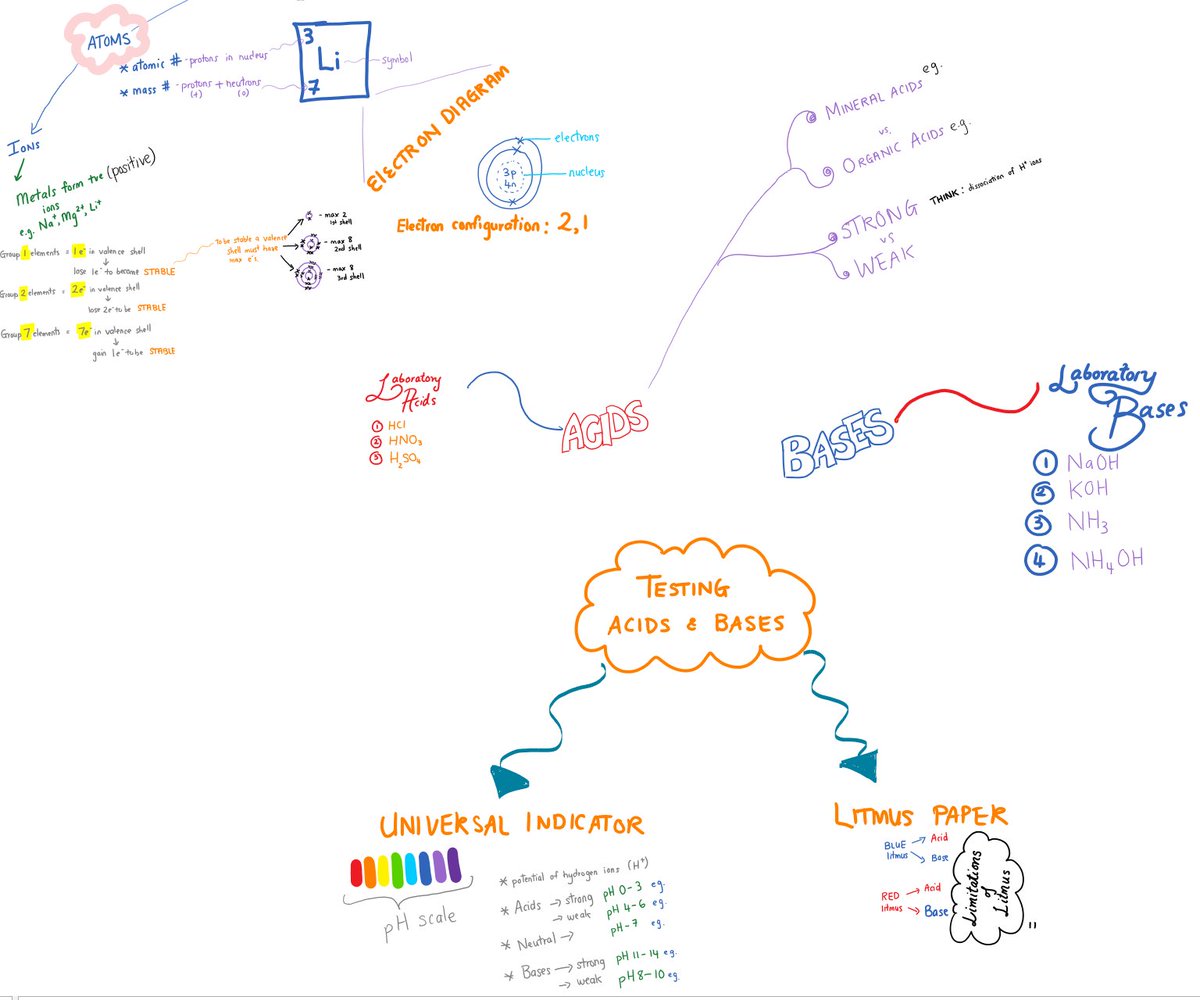 ATOMS
* atomic # - protons in nucleus
* mass # - protons + neutrons
(+) (0)
3
Li
7
symbol
ELECTRON DIAGRAM
electrons
nucleus
3p
4n
Electron configuration: 2,1
IONS
Metals form +ve (positive)
ions
e.g. Na+, Mg2+, Li+
Group 1 elements = 1e- in valence shell
lose 1e- to become STABLE
Group 2 elements = 2e- in valence shell
lose 2e- to be STABLE
Group 7 elements = 7e- in valence shell
gain 1e- to be STABLE
To be stable a valence
shell must have
max e's.
- max 2
1st shell
- max 8
2nd shell
- max 8
3rd shell
MINERAL ACIDS eg.
vs.
ORGANIC ACIDS e.g.
STRONG
vs
WEAK
THINK: dissociation of H+ ions
Laboratory
Acids
1 HCl
2 HNO3
3 H2SO4
ACIDS
BASES
Laboratory
Bases
1 NaOH
2 KOH
3 NH3
4 NH4OH
TESTING
ACIDS & BASES
UNIVERSAL INDICATOR
pH scale
* potential of hydrogen ions (H+)
* Acids → strong pH 0-3 eg.
→ weak pH 4-6 eg.
* Neutral → pH-7 eg.
* Bases → strong pH 11-14 eg.
→ weak pH 8-10 eg.
LITMUS PAPER
BLUE litmus → Acid
→ Base
RED litmus → Acid
→ Base
Limitations
of
Litmus
"